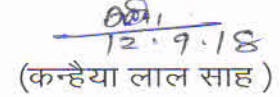 12.9.18
(कन्हैया लाल साह )